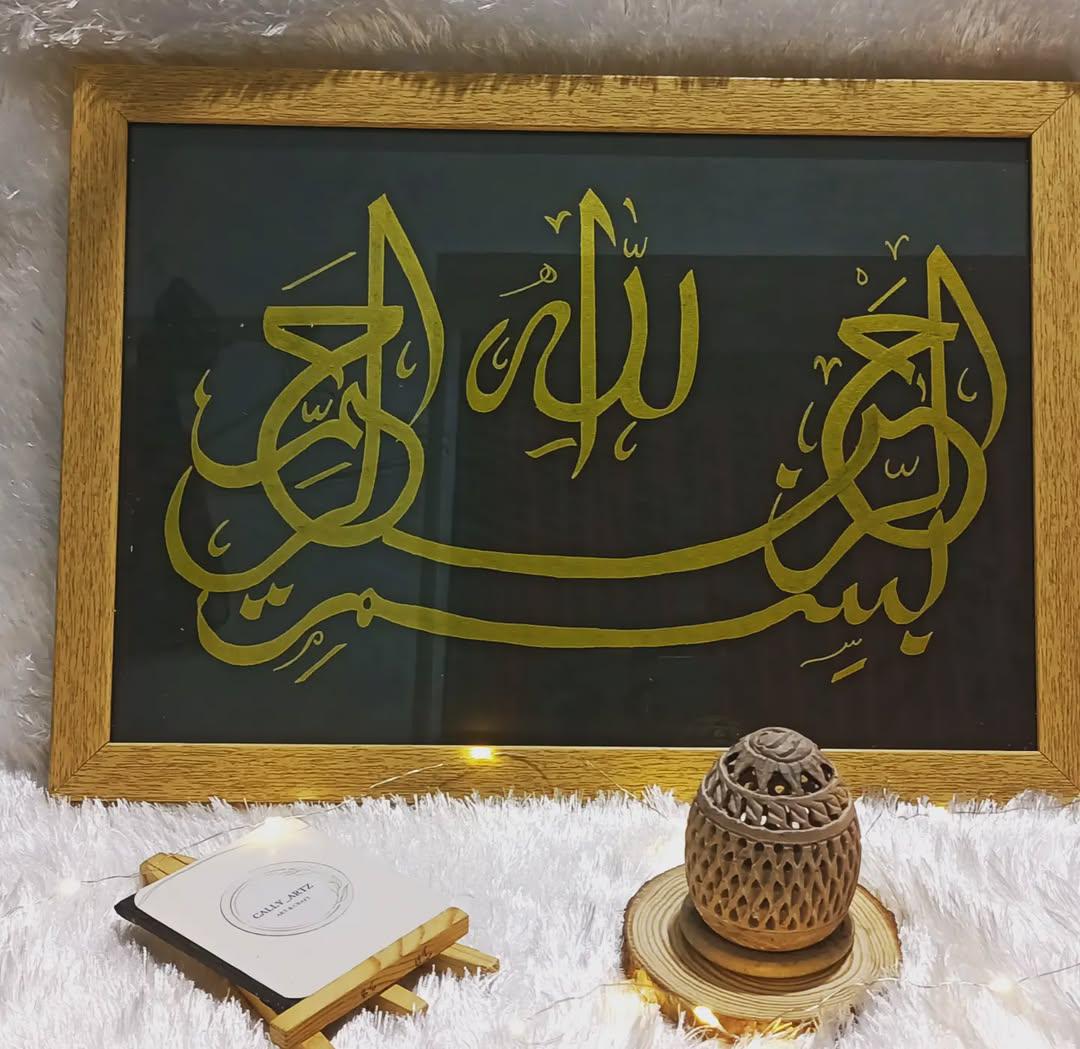 بسم الله الرحمن الرحيم
CALLY_ARTZ
ART & CRAFT